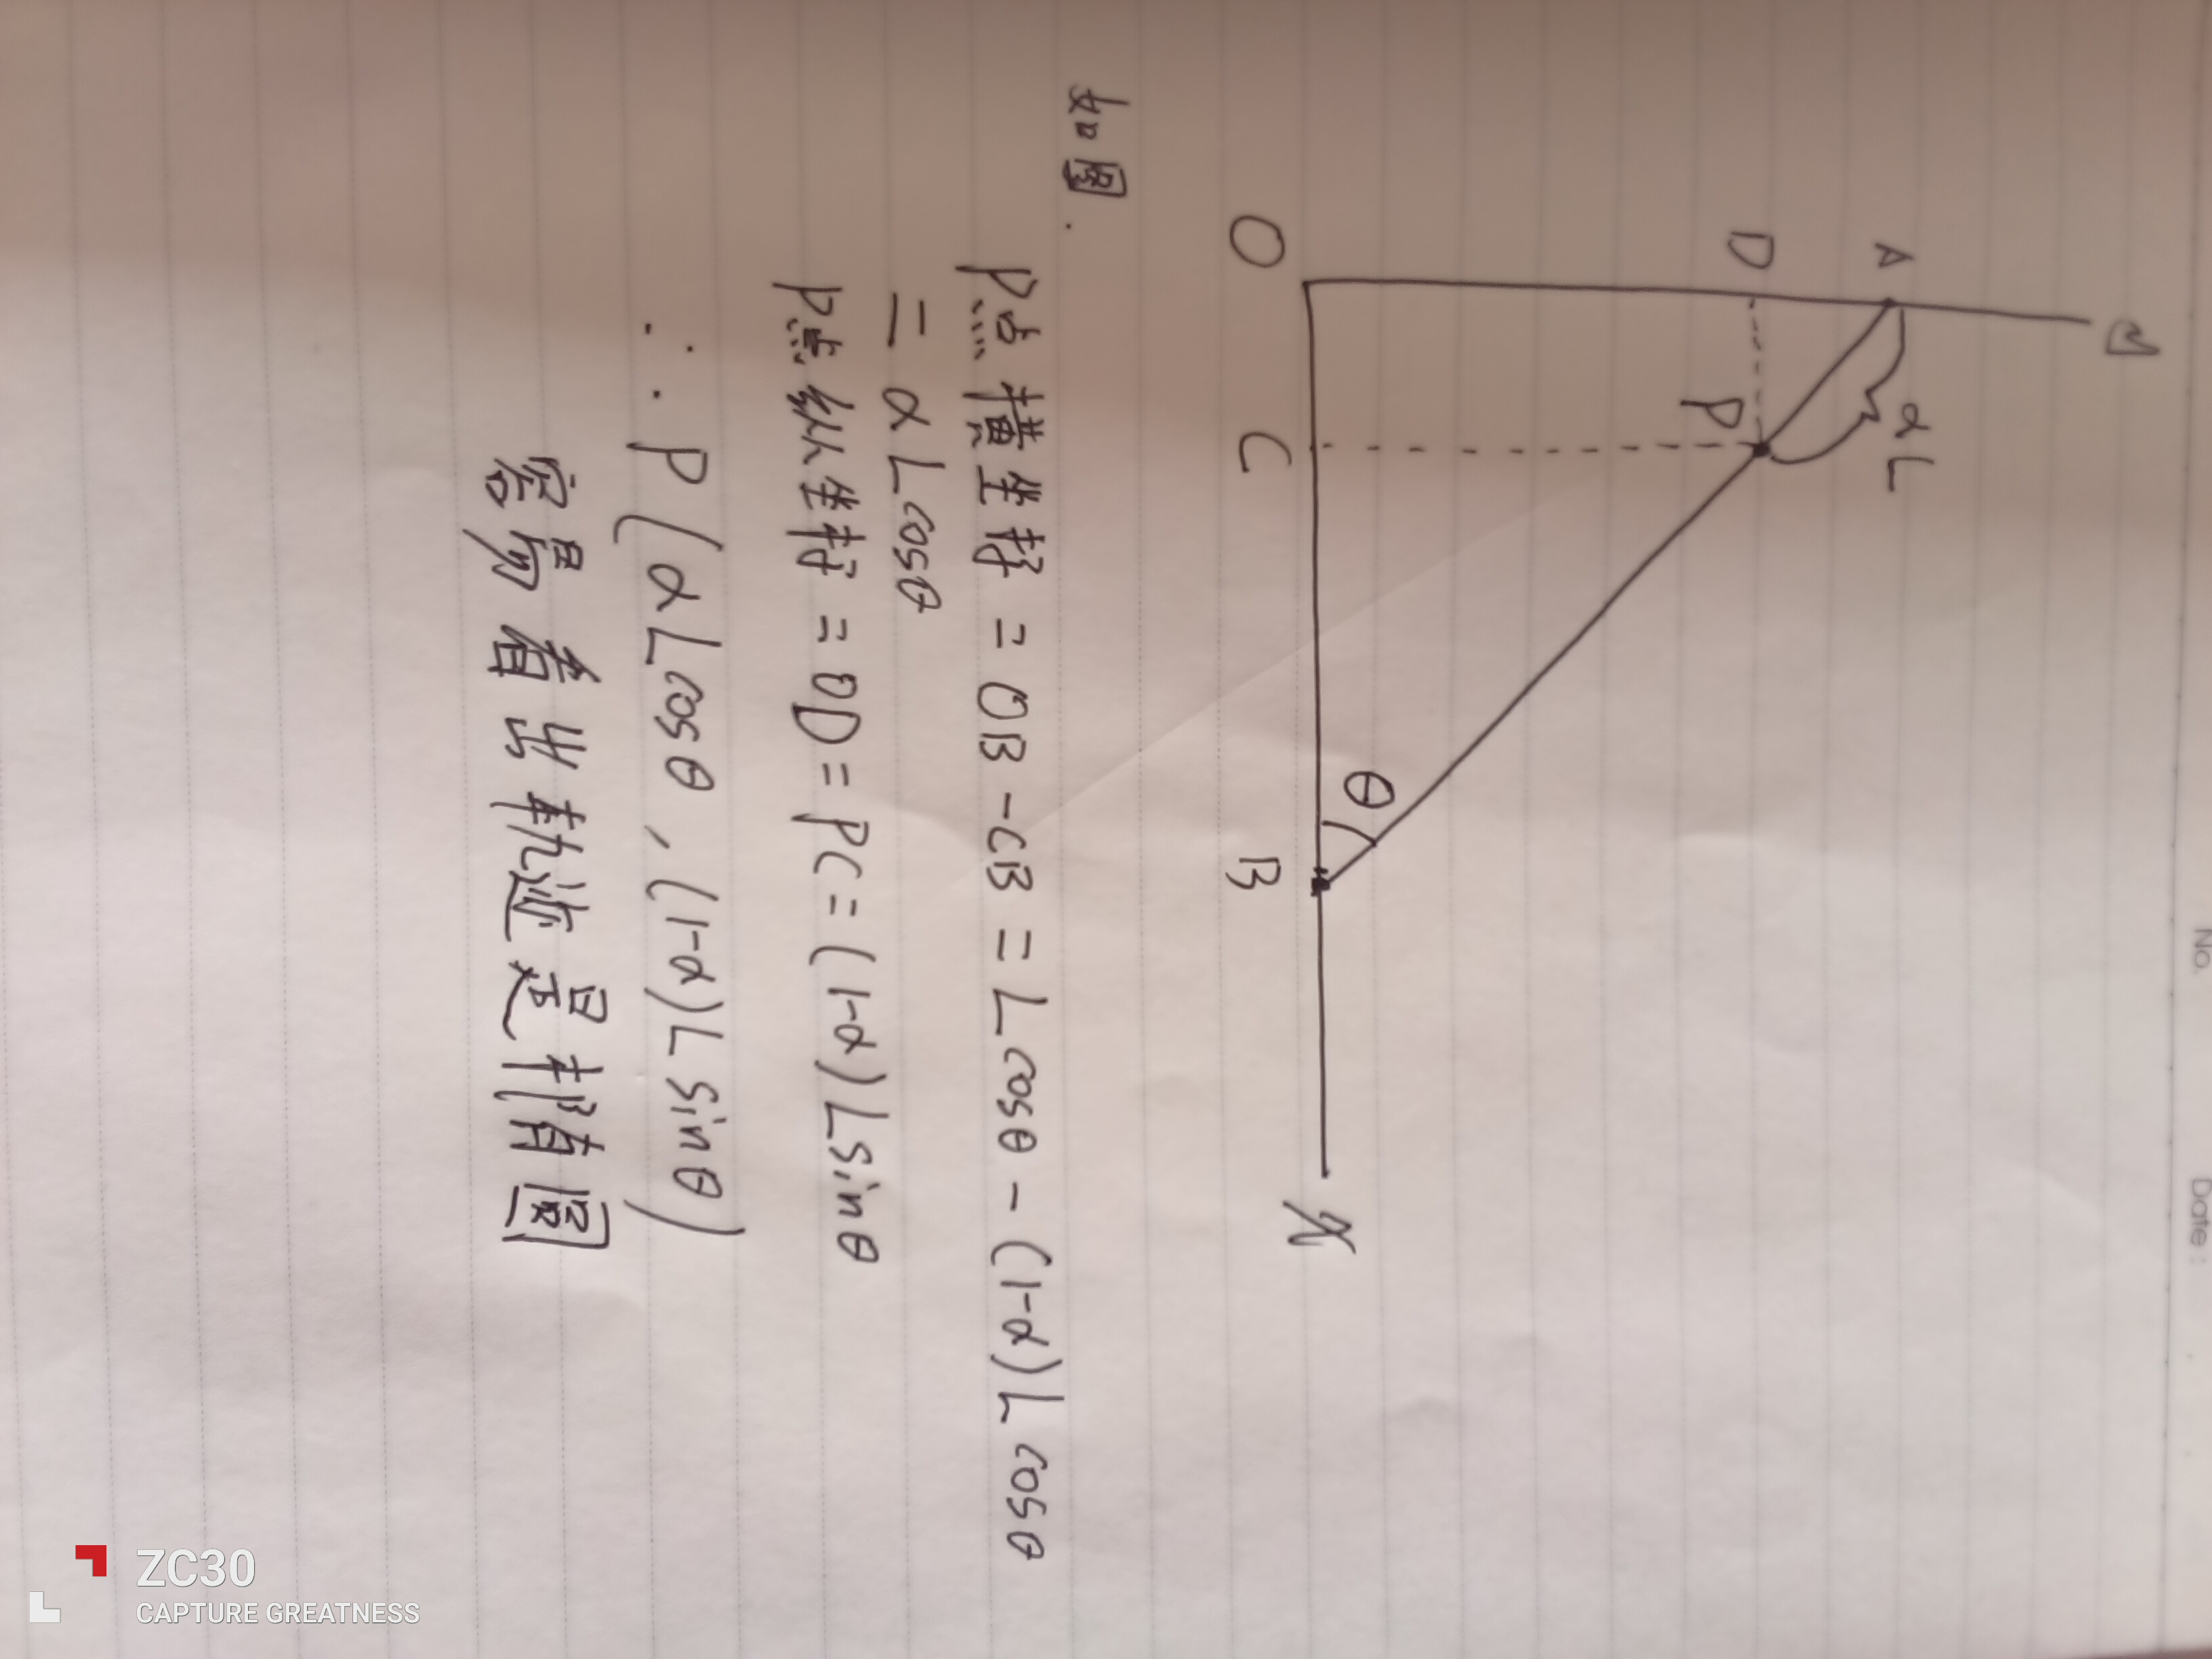 No.
Date:
y
A
αL
D
P
θ
O
C
B
x
如图.
P点横坐标 = OB - CB = Lcosθ - (1-α)Lcosθ
= αLcosθ
P点纵坐标 = OD = PC = (1-α)Lsinθ
∴ P(αLcosθ, (1-α)Lsinθ)
容易看出轨迹是椭圆
ZC30
CAPTURE GREATNESS